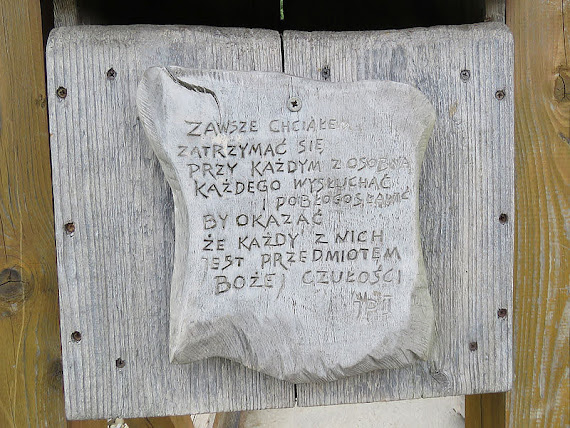 ZAWSZE CHCIAŁEM
ZATRZYMAĆ SIĘ
PRZY KAŻDYM Z OSOBNA
KAŻDEGO WYSŁUCHAĆ
I POBŁOGOSŁAWIĆ
BY OKAZAĆ
ŻE KAŻDY Z NICH
JEST PRZEDMIOTEM
BOŻEJ CZUŁOŚCI